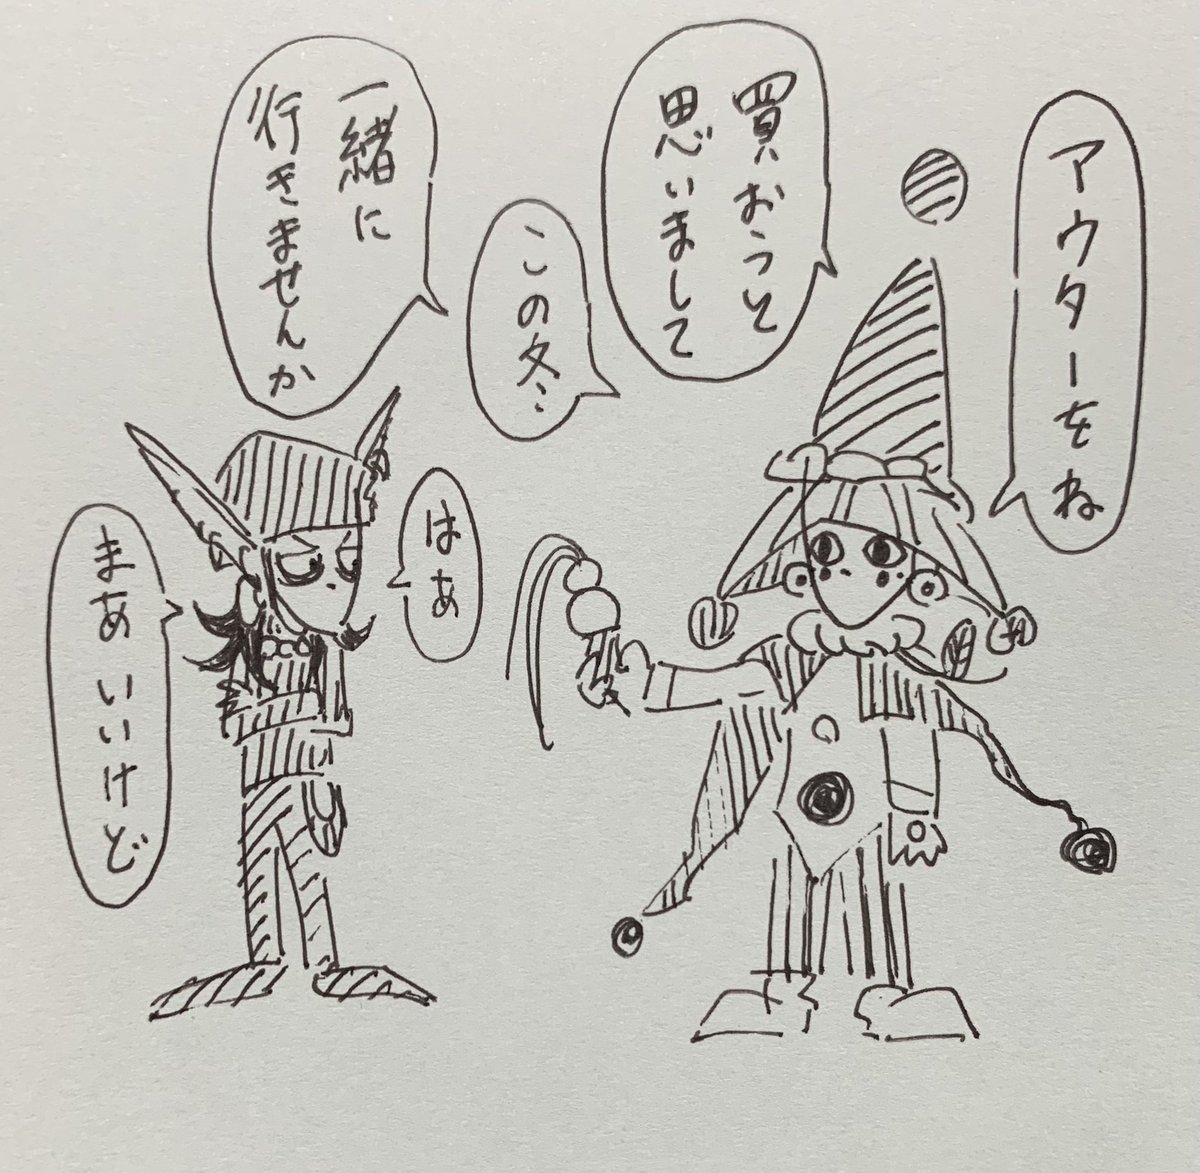 アウターをね
買おうと
思いまして
この冬
一緒に
行きませんか
はあ
まあいいけど